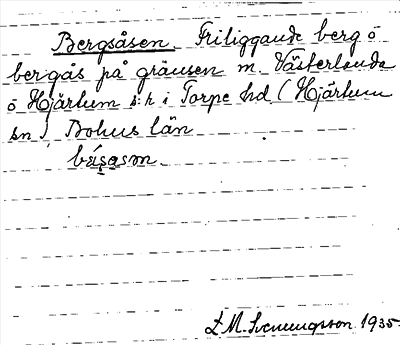 Bergsåsen Friliggande berg o
bergås på gränsen m. Västerlanda
o Hjärtum s:r i Torpe hd (Hjärtum
sn), Bohus län
básasm
L M. Svenungsson 1935.